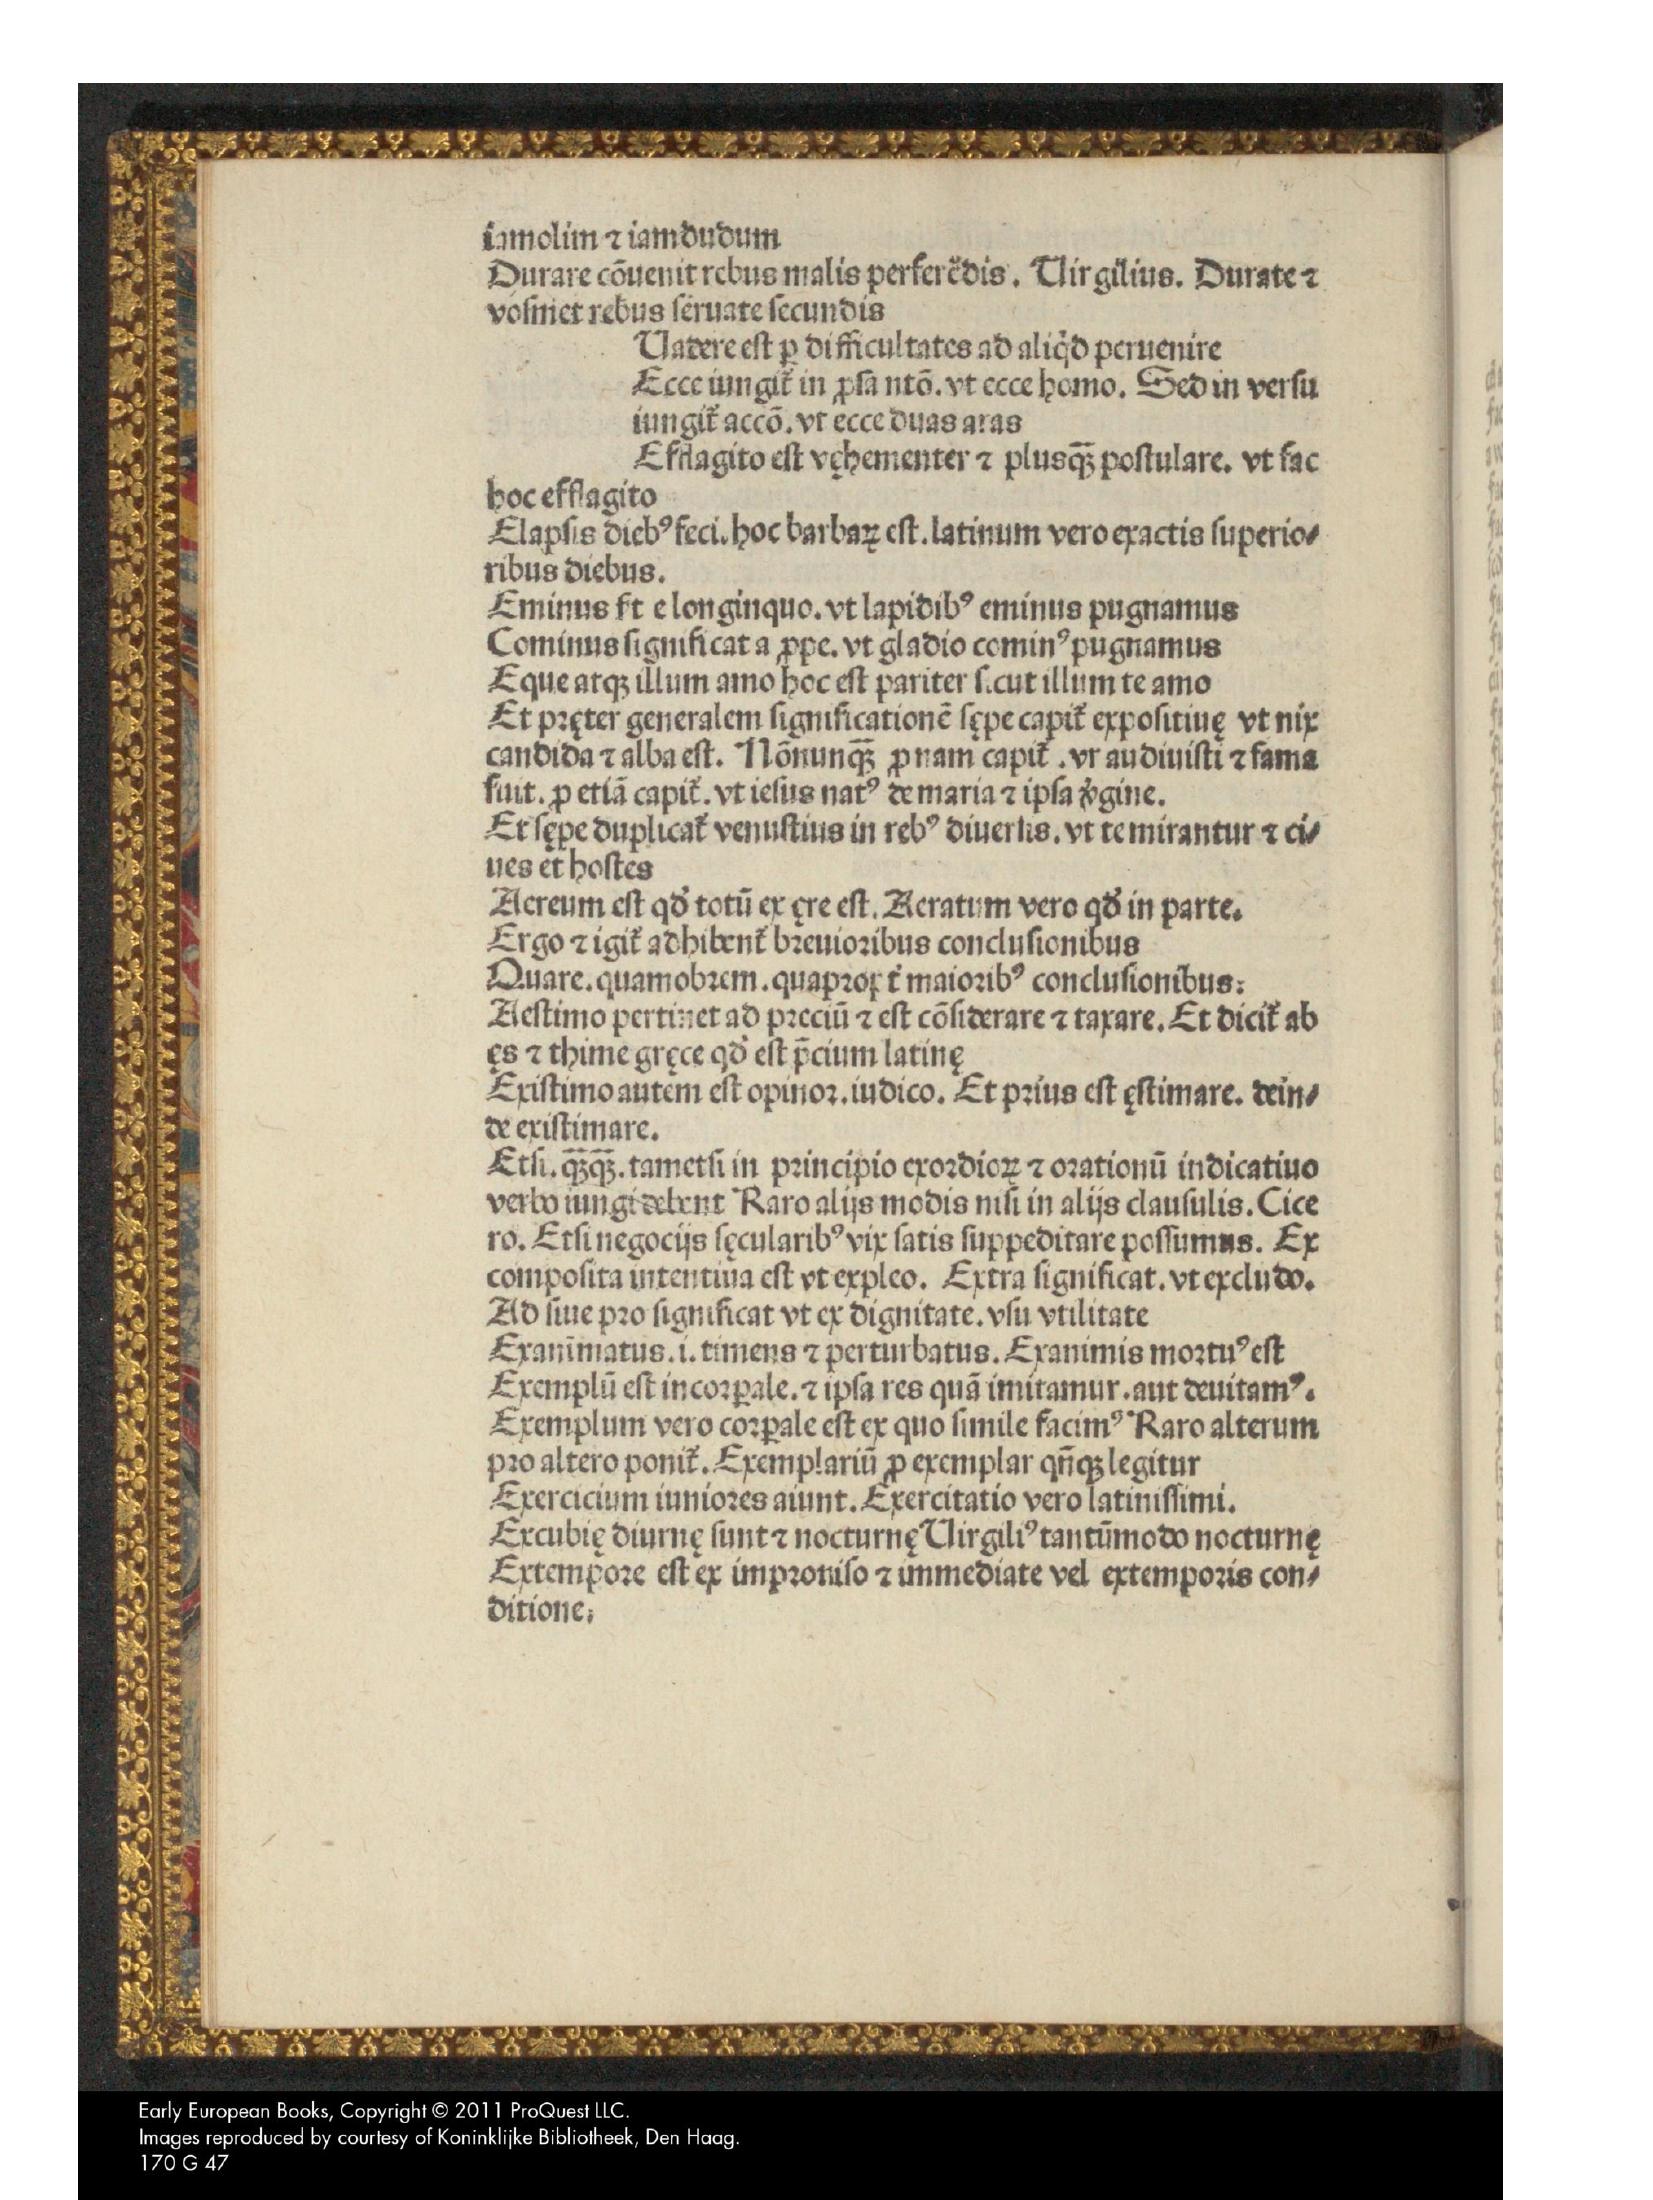 iamolim ⁊ iamdudum
Durare cōuenit rebus malis perferēdis. Uirgilius. Durate ⁊
voſmet rebus ſeruate ſecundis
Uadere eſt ꝑ difficultates ad aliq̇d peruenire
Ecce iungit᷑ in ꝓſa ntō. vt ecce homo. Sed in verſu
iungit᷑ accō. vt ecce duas aras
Efflagito eſt vęhementer ⁊ plusqꝫ̄ poſtulare. vt fac
hoc efflagito
Elapſis dieb⁹ feci. hoc barbaꝝ eſt. latinum vero exactis ſuperio⸗
ribus diebus.
Eminus ſt e longinquo. vt lapidib⁹ eminus pugnamus
Cominus ſignificat a ꝓpe. vt gladio comin⁹ pugnamus
Eque atqꝫ illum amo hoc eſt pariter ſicut illum te amo
Et pręter generalem ſignificationē ſępe capit᷑ expoſitiuę vt nix
candida ⁊ alba eſt. Nōnunqꝫ̄ ꝓ nam capit᷑. vt audiuiſti ⁊ fama
fuit. ꝓ etiā capit᷑. vt ieſus nat⁹ de maria ⁊ ipſa v̓gine.
Et ſępe duplicat᷑ venuſtius in reb⁹ diuerſis. vt te mirantur ⁊ ci⸗
ues et hoſtes
Aereum eſt qd̓ totū ex ęre eſt. Aeratum vero qd̓ in parte.
Ergo ⁊ igit᷑ adhibent᷑ breuioribus concluſionibus
Quare. quamobrem. quapropt̓ maiorib⁹ concluſionibus.
Aeſtimo pertinet ad preciū ⁊ eſt cōſiderare ⁊ taxare. Et dicit᷑ ab
ęs ⁊ thime gręce qd̓ eſt p̄cium latinę
Exiſtimo autem eſt opinor. iudico. Et prius eſt ęſtimare. dein⸗
de exiſtimare.
Etſi. qꝫ̄qꝫ̄. tametſi in principio exordioꝝ ⁊ orationū indicatiuo
verbo iungi debent Raro alijs modis niſi in alijs clauſulis. Cice
ro. Etſi negocijs ſęcularib⁹ vix ſatis ſuppeditare poſſumus. Ex
compoſita intentiua eſt vt expleo. Extra ſignificat. vt excludo.
Ad ſiue pro ſignificat vt ex dignitate. vſu vtilitate
Exanīmatus. i. timens ⁊ perturbatus. Exanimis mortu⁹ eſt
Exemplū eſt incorꝑale. ⁊ ipſa res quā imitamur. aut deuitam⁹.
Exemplum vero corꝑale eſt ex quo ſimile facim⁹ Raro alterum
pro altero ponit᷑. Exemplariū ꝓ exemplar qn̄qꝫ legitur
Exercicium iuniores aiunt. Exercitatio vero latiniſſimi.
Excubię diurnę ſunt ⁊ nocturnę Uirgili⁹ tantūmodo nocturnę
Extempore eſt ex improuiſo ⁊ immediate vel extemporis con⸗
ditione.
Early European Books, Copyright © 2011 ProQuest LLC.
Images reproduced by courtesy of Koninklijke Bibliotheek, Den Haag.
170 G 47